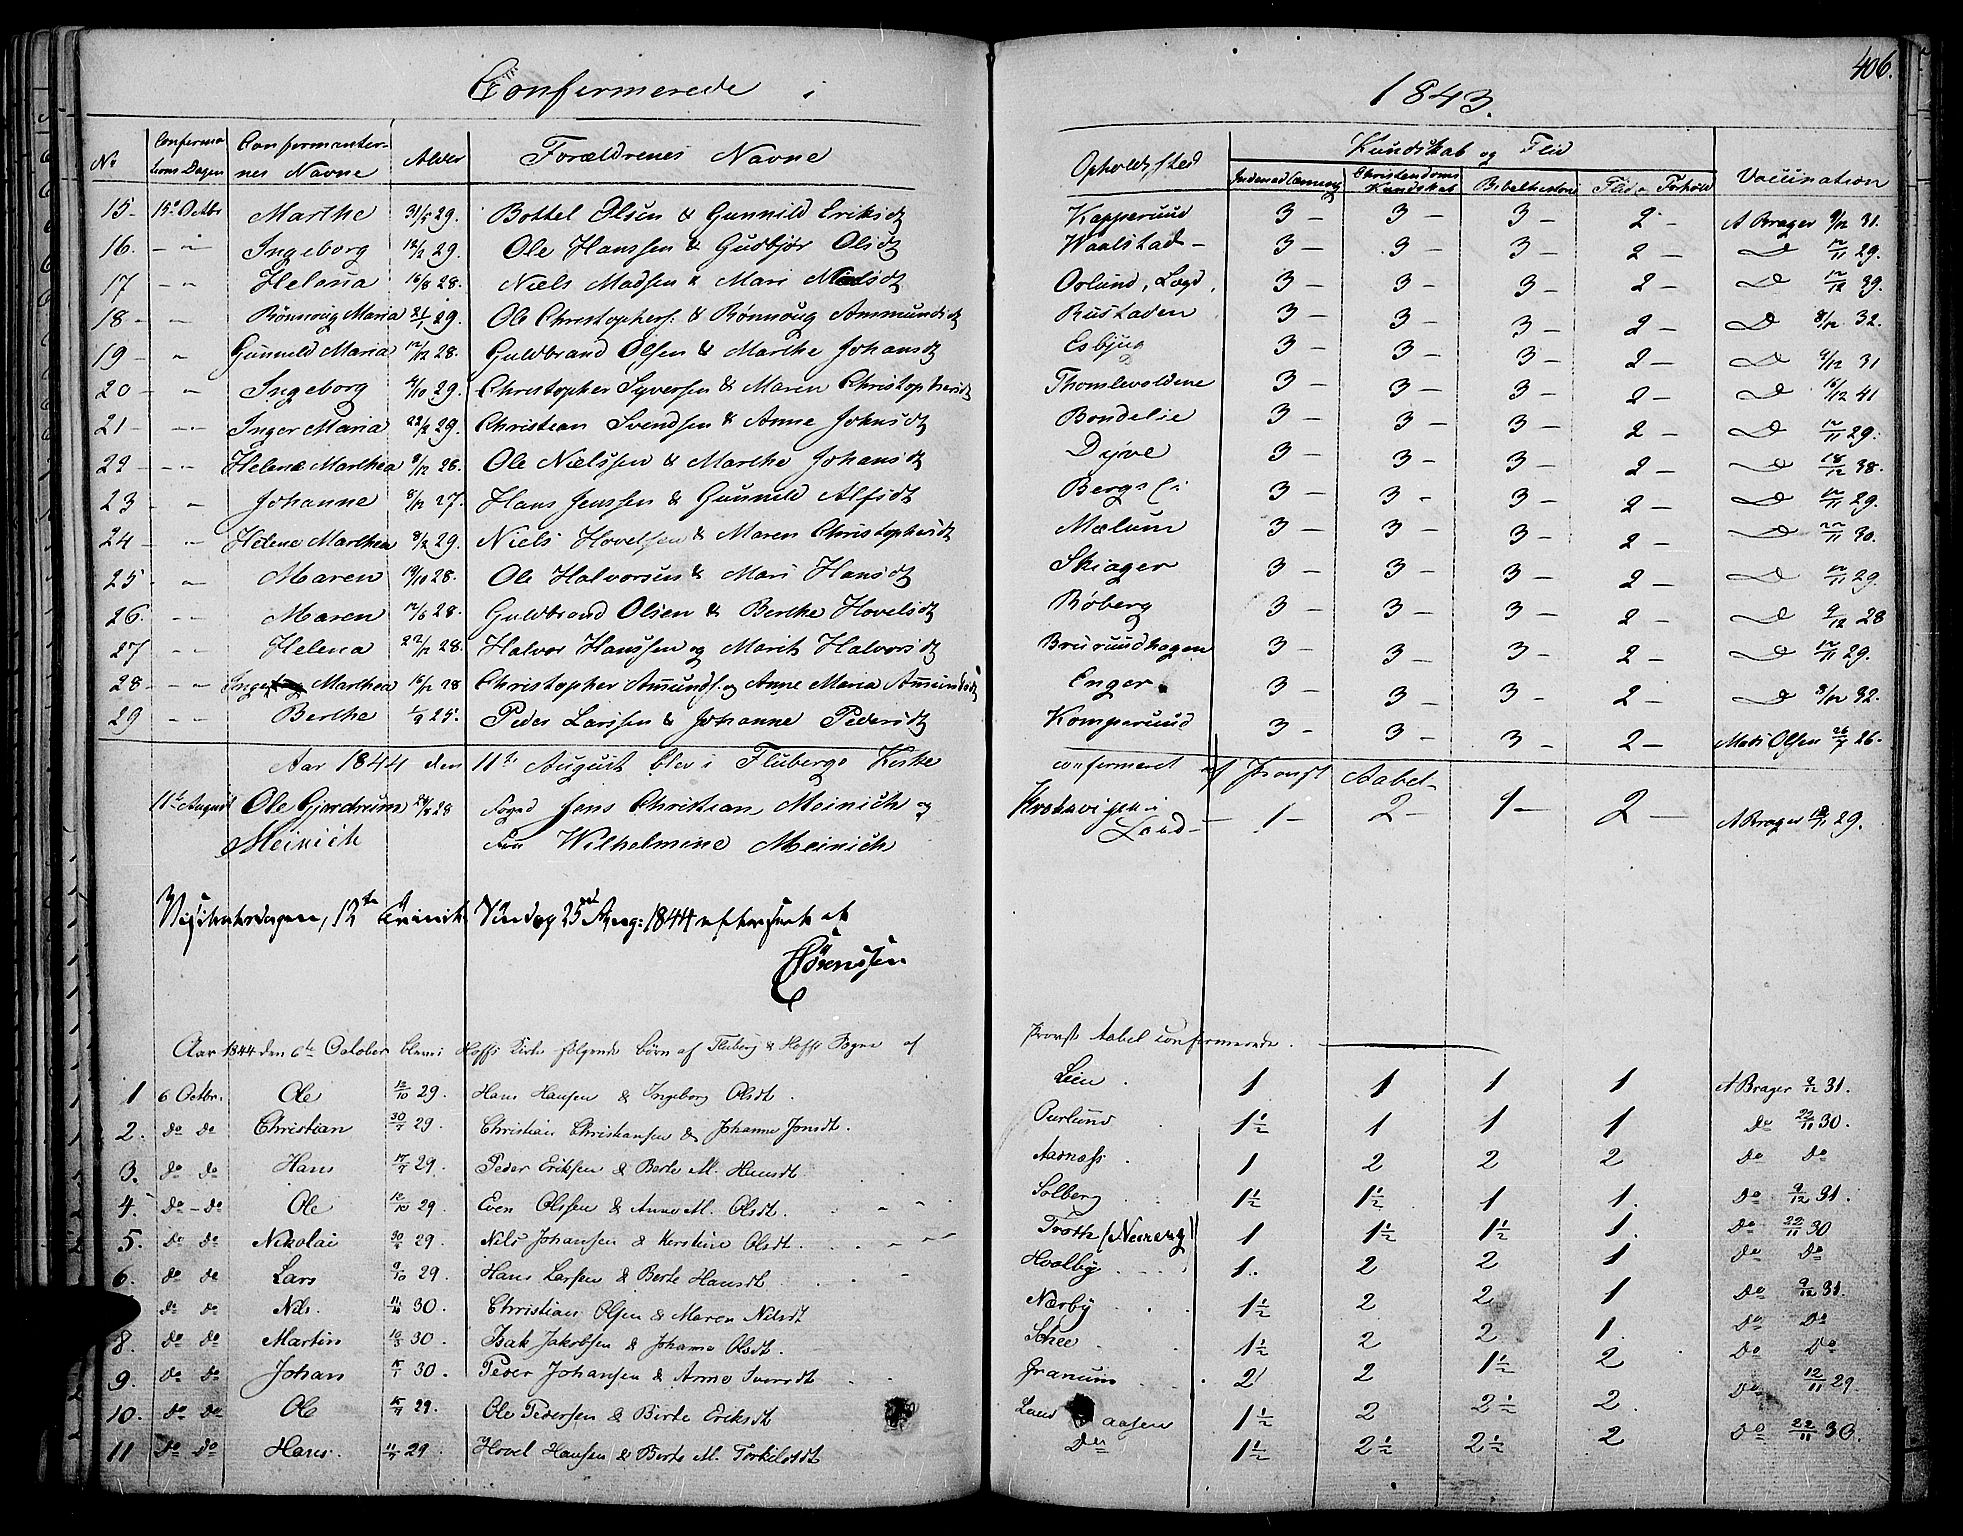 Confirmerede i 1843.
406.
No Confirmations Dagen Confirmanternes Navne Alder Forældrenes Navne Opholdssted Kundskab og Flid Vaccination
Indenadlæsning Christendoms Kundskab Bibelhistorie Flid Forhold
15 - 15de Octbr Marthe 31/5 29. Bottel Olsen & Gunnild Eriksdt Kapperuud 3 - 3 - 3 - 2 - A Brager 9/12 31.
16. - " - Ingeborg 12/2 29. Ole Hanssen & Gudbjør Olsdt Waalstad - 3 - 3 - 3 - 2 - D 12/11 29.
17 - " Helena 16/8 28. Niels Madsen & Mari Madsdt Oslund, Lægd, 3 - 3 - 3 - 2 - D 12/12 39.
18 - " Rönnoug Maria 21/1 29. Ole Christophers: & Rönnoug Ammundsdt Rustaden 3 - 3 - 3 - 2 - D 8/12 32.
19 - " Gunneld Maria 12/12 28. Guldbrand Olsen & Marthe Johansdt Esbjug 3 - 3 - 3 - 2 - D 9/12 31
20 - " Ingeborg 4/10 29. Christopher Syversen & Maren Christophersdt Thomlevoldene 3 - 3 - 3 - 2 - D 16/12 41
21 - " Inger Maria 22/2 29. Christian Svendsen & Anne Johnsdt Bondelie 3 - 3 - 3 - 2 - D 12/11 29.
22 - " Helene Marthea 9/12 28. Ole Nielssen & Marthe Johansdt Dyve 3 - 3 - 3 - 2 - D 18/12 38.
23 - " Johanne 8/12 27. Hans Jenssen & Gunneld Alfsdt Bergsli 3 - 3 - 3 - 2 - D 12/11 29.
24 - " Helene Marthea 8/2 29. Niels Hovelsen & Maren Christophersdt Mælum 3 - 3 - 3 - 2 - D 22/11 30.
25 - " Maren 19/10 28. Ole Halvorsen & Mari Hansdt Skiager 3 - 3 - 3 - 2 - D 12/11 29
26. - " Maren 12/6 28. Guldbrand Olsen & Berthe Hovelsdt Röberg 3 - 3 - 3 - 2 - D 9/12 28
27 - " Helena 22/12 28. Halvor Hanssen og Marit Halvorsdt Bruruudhagen 3 - 3 - 3 - 2 - D 12/11 29.
28 - " Inge Marthea 16/12 28 Christopher Amunds. og Anne Maria Amundsdt Enger. 3 - 3 - 3 - 2 - D 3/12 32.
29 - " Berthe 1/9 25. Peder Larssen & Johanne Pedersdt Komperuud 3 - 3 - 3 - 2 - Mads Olsen 26/7 26.
Aar 1844 den 11te August blev i Flubergs Kirke confirmeret af Provst Aabel
11te August Ole Gjerdrum 24/8 28 Foged Jens Christian Meinich og 1 - 2 - 1 - 2 - A Brager 12/11 29.
Meinich Fru Wilhelmine Meinich Land -
Visitatsdagen, 12te Trinit. Söndag 25de Aug: 1844 efterseet af
Sörenssen
Aar 1844 den 6te October bleve i Hoffs Kirke følgende børn af Fluberg & Hoffs Sogne af Provst Aabel confirmerede.
1 6 Octbr. Ole 12/10 29. Hans Hansen & Ingeborg Olsdt. Lien. 1 1 1 1 A Brager 9/12 31.
2. do do Christian 30/7 29. Christian Christiansen & Johanne Jonsdt. Ourlund 1½ 1 1 1 do 22/11 30.
3. do do Hans 17/7 29. Peder Eriksen & Berte M. Hansdt. Aadnæss. 1 2 2 2 do do
4. do - do Ole 12/10 29. Even Olssen & Anne M. Olsdt. Solberg 1½ 1½ 1 1. do 9/12 31.
5. do do Nikolai 30/4 29. Nils Johansen & Kerstine Olsdt. Troth 1 1½ 1½ 1. do 22/11 30
6. do do Lars 9/10 29. Hans Larsen & Berte Hansdt. Hvalby 1. 2 2 1 do do
do do Nils. 11/4 30. Christian Olsen & Maren Nilsdt Nærby 1½ 2 2 1 do 9/12 31.
8. do do Martin 10/3 30. Isak Jakobsen & Johanne Olsdt. 1½ 2 2 1. do do
9. do do Johan 15/1 30. Peder Johansen & Anne Iversdt Granum 2 2 1½ 2 do do
10. do do Ole 15/4 29. Ole Pedersen & Berte Eriksdt Land aasen 1½ 2 2½ 2. do 12/11 29
11 do do Hans. 11/7 29. Hovel Hansen & Berte M. Torkelsdt do 1½ 2½ 2½ 2 do 22/11 30.